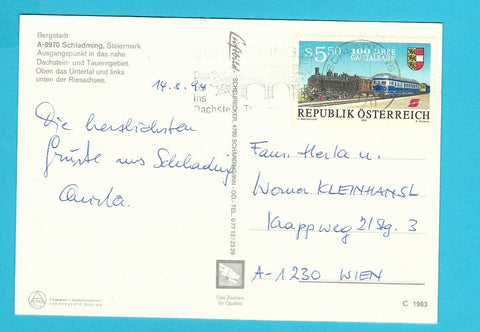 Bergstadt
A-8970 Schladming, Steiermark
Ausgangspunkt in das nahe
Dachstein- und Tauerngebiet.
Oben das Untertal und links
unten der Riesachsee.
14. 8. 94
Die herzlichsten
Grüße aus Schladming
SCHLADMING
ins
Dachstein
S 5,50
100 JAHRE
GAILTALBAHN
REPUBLIK ÖSTERREICH
Fam. Herta u.
Werner KLEINHANSL
Knappweg 2/Stg. 3
A-1230 WIEN
Das Zeichen
für Qualität
C 1983